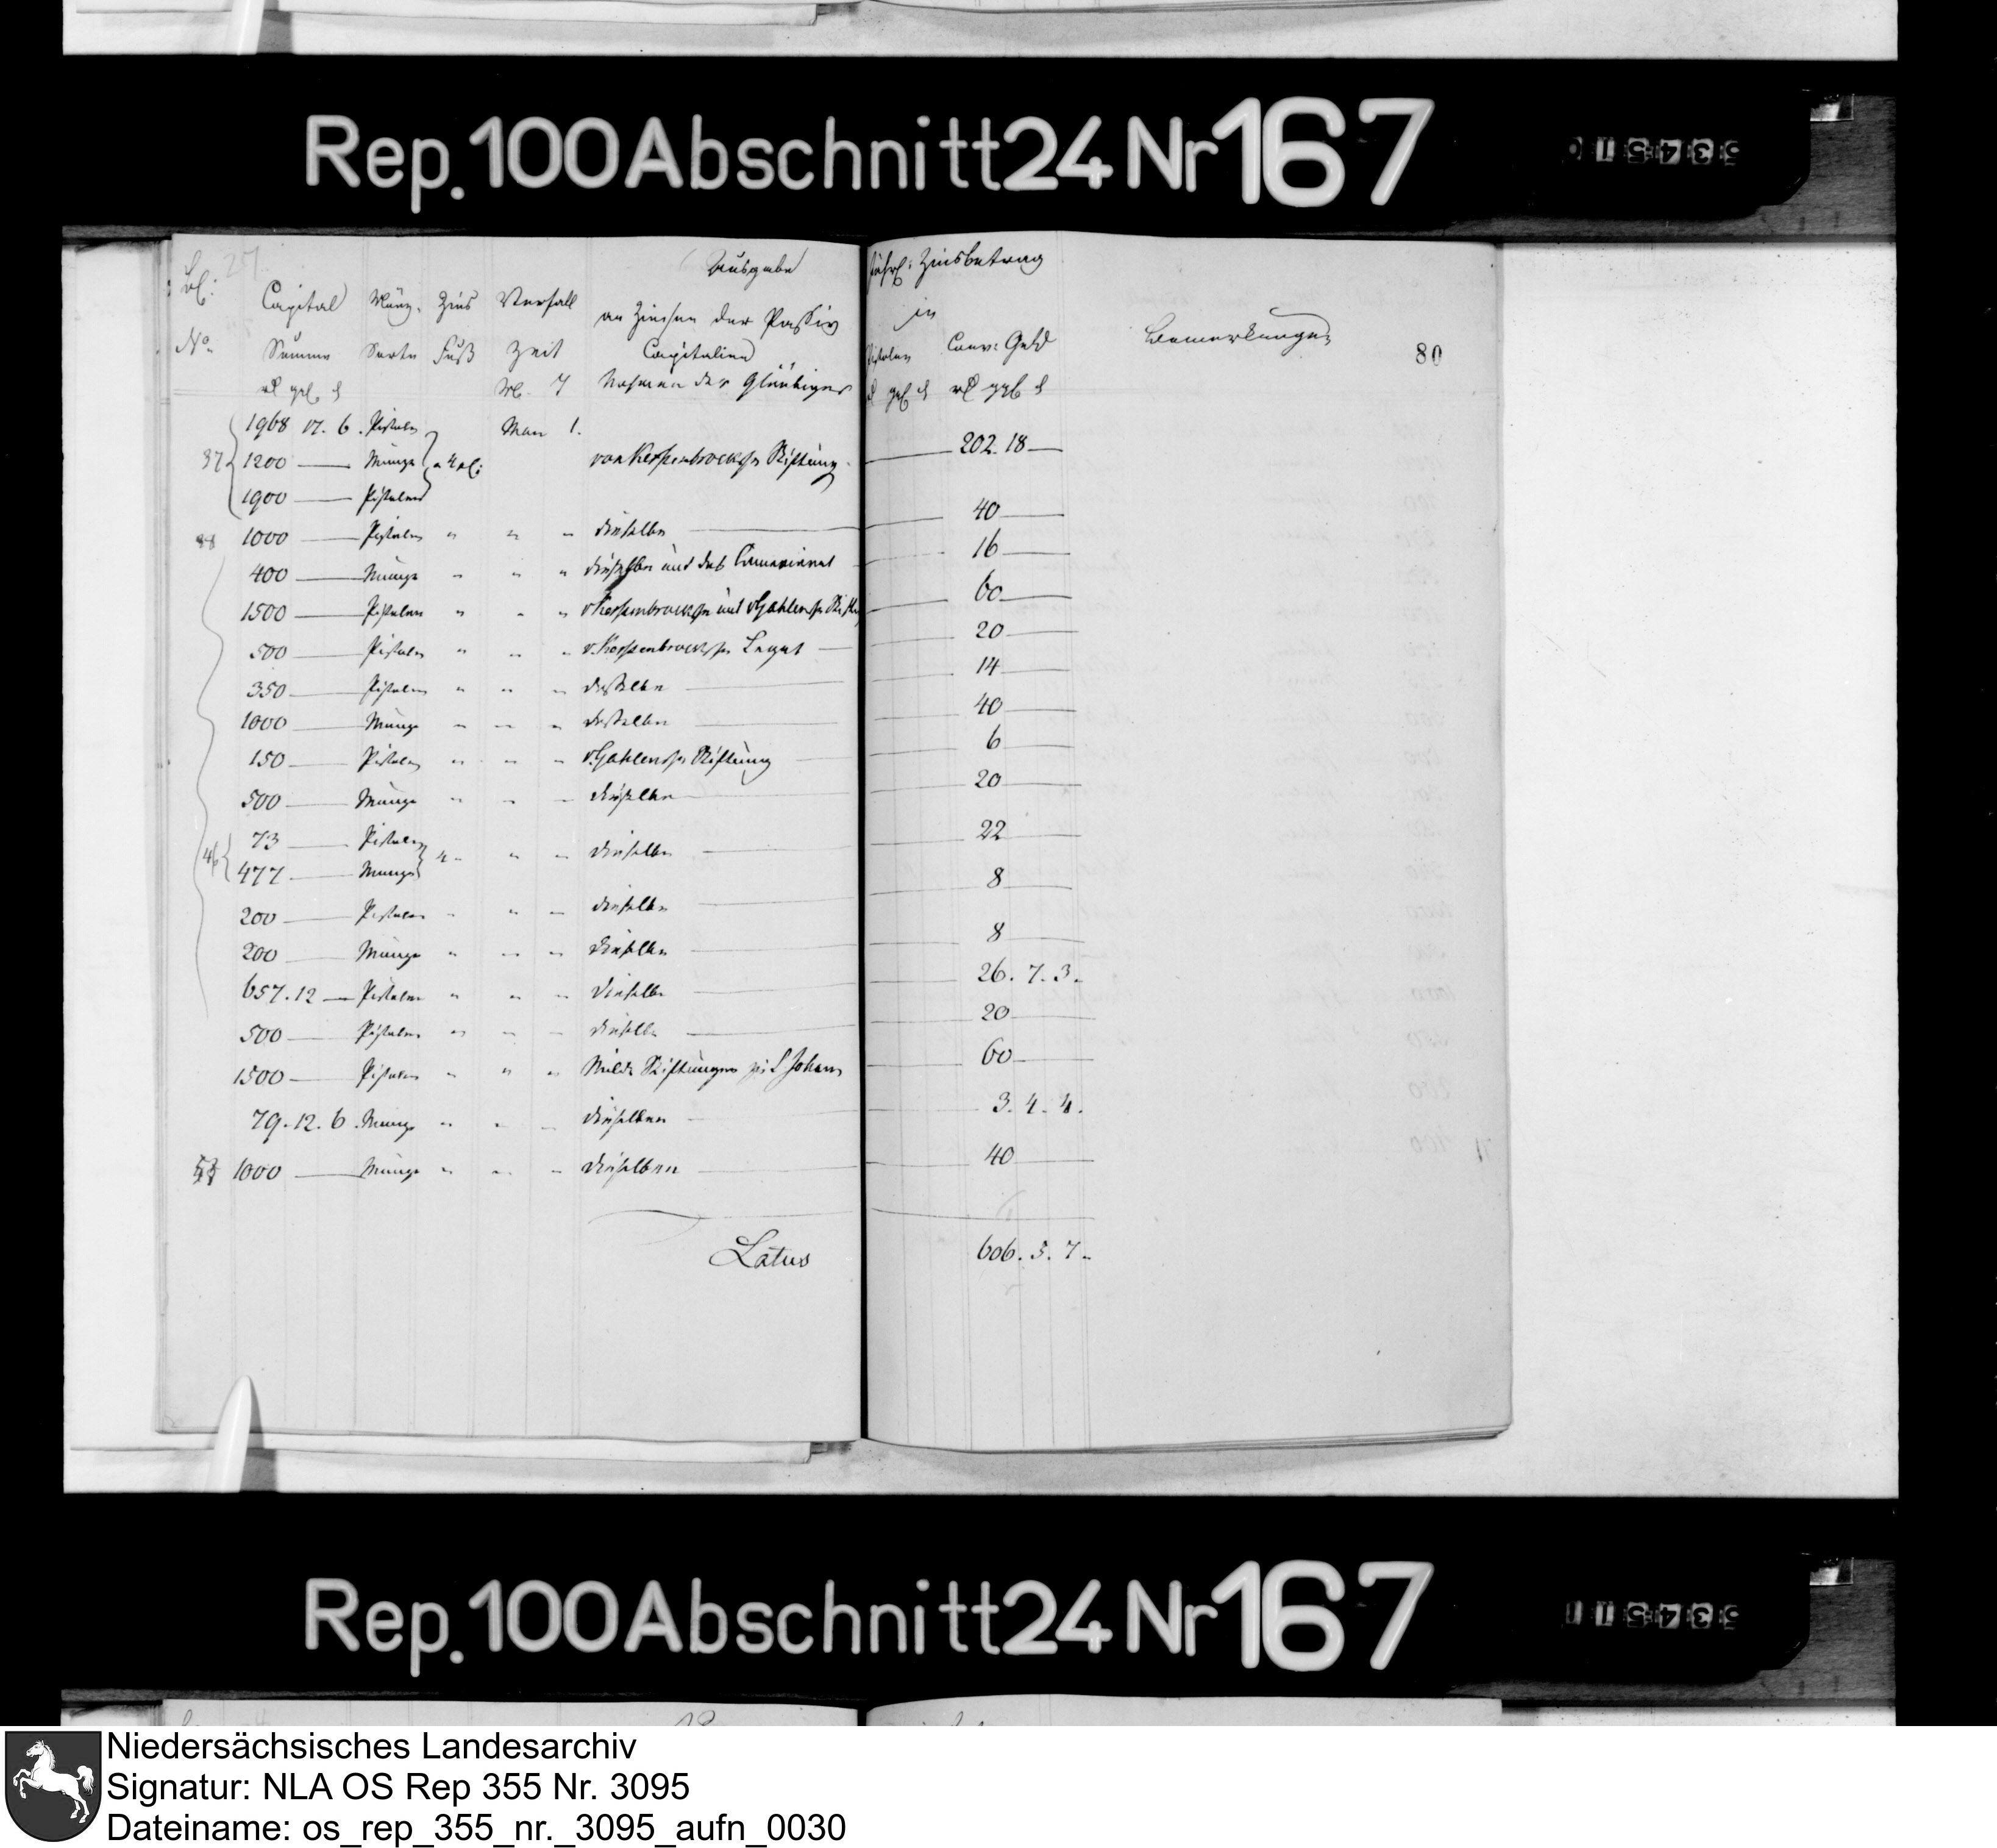 Rep. 100 Abschnitt 24 Nr 167
53451
27
Ausgabe
jährl: Zinsbetrag
Capital Münz- Zins Verfall an Zinsen der Passiv in
No. Summe Sorte Fuß Zeit Capitalien Pistolen Conv: Geld Bemerkungen 80
Nahmen der Gläubiger
1968 17. 6. Pistolen May 1.
37 1200 — Münze a 4 pC: von Kerssenbrocksche Stiftung — 202. 18 —
1900 — Pistolen
38 1000 — Pistolen " " " dieselbe — 40 —
400 — Münze " " " dieselbe und das Camerariat 16 —
1500 — Pistolen " " " v Kerssenbrocksche und v Gahlensche Stiftg 60 —
500 — Pistolen " " " v. Kerssenbrocksche Legat — 20 —
350 — Pistolen " " " dasselbe — 14 —
1000 — Münze " " " dasselbe — 40 —
150 — Pistolen " " " v. Gahlensche Stiftung — 6 —
500 — Münze " " " dieselbe — 20 —
73 — Pistolen
46 477 — Münze 4 " " " dieselbe — 22 —
200 — Pistolen " " " dieselbe — 8 —
200 — Münze " " " dieselbe — 8 —
657. 12 — Pistolen " " " dieselbe — 26. 7. 3.
500 — Pistolen " " " dieselbe — 20 —
1500 — Pistolen " " " Milde Stiftungen zu S Johann 60 —
79. 12. 6. Münze " " " dieselben — 3. 4. 4.
1000 — Münze " " " dieselben — 40 —
Latus 606. 5. 7.
Rep. 100 Abschnitt 24 Nr 167
53451
Niedersächsisches Landesarchiv
Signatur: NLA OS Rep 355 Nr. 3095
Dateiname: os_rep_355_nr._3095_aufn_0030